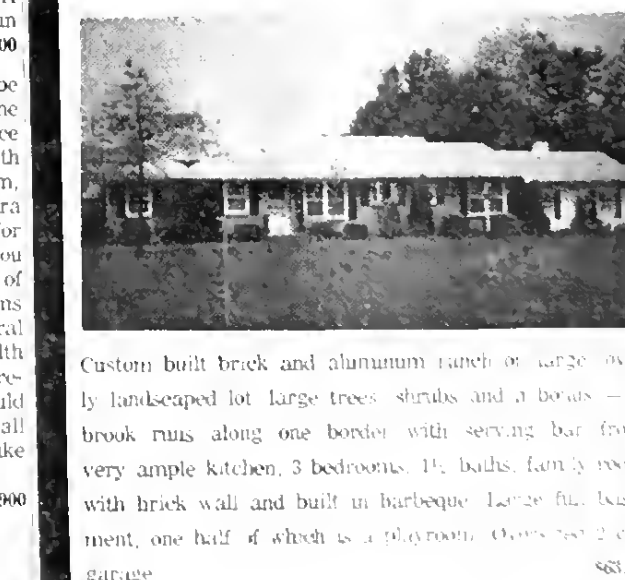 in
00
be
ne
ce
th
m,
ra
for
ou
of
ns
ral
lth
re-
uld
all
ke
900
Custom built brick and aluminum ranch on large
ly landscaped lot large trees shrubs and a bonus —
brook runs along one border with serving bar
very ample kitchen, 3 bedrooms, 1½ baths, family
with brick wall and built in barbeque Large full
ment, one half of which is a playroom Oversized 2
garage